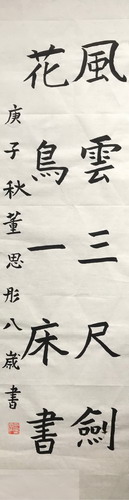 風雲三尺劍
花鳥一床書
庚子秋董思彤八歲書